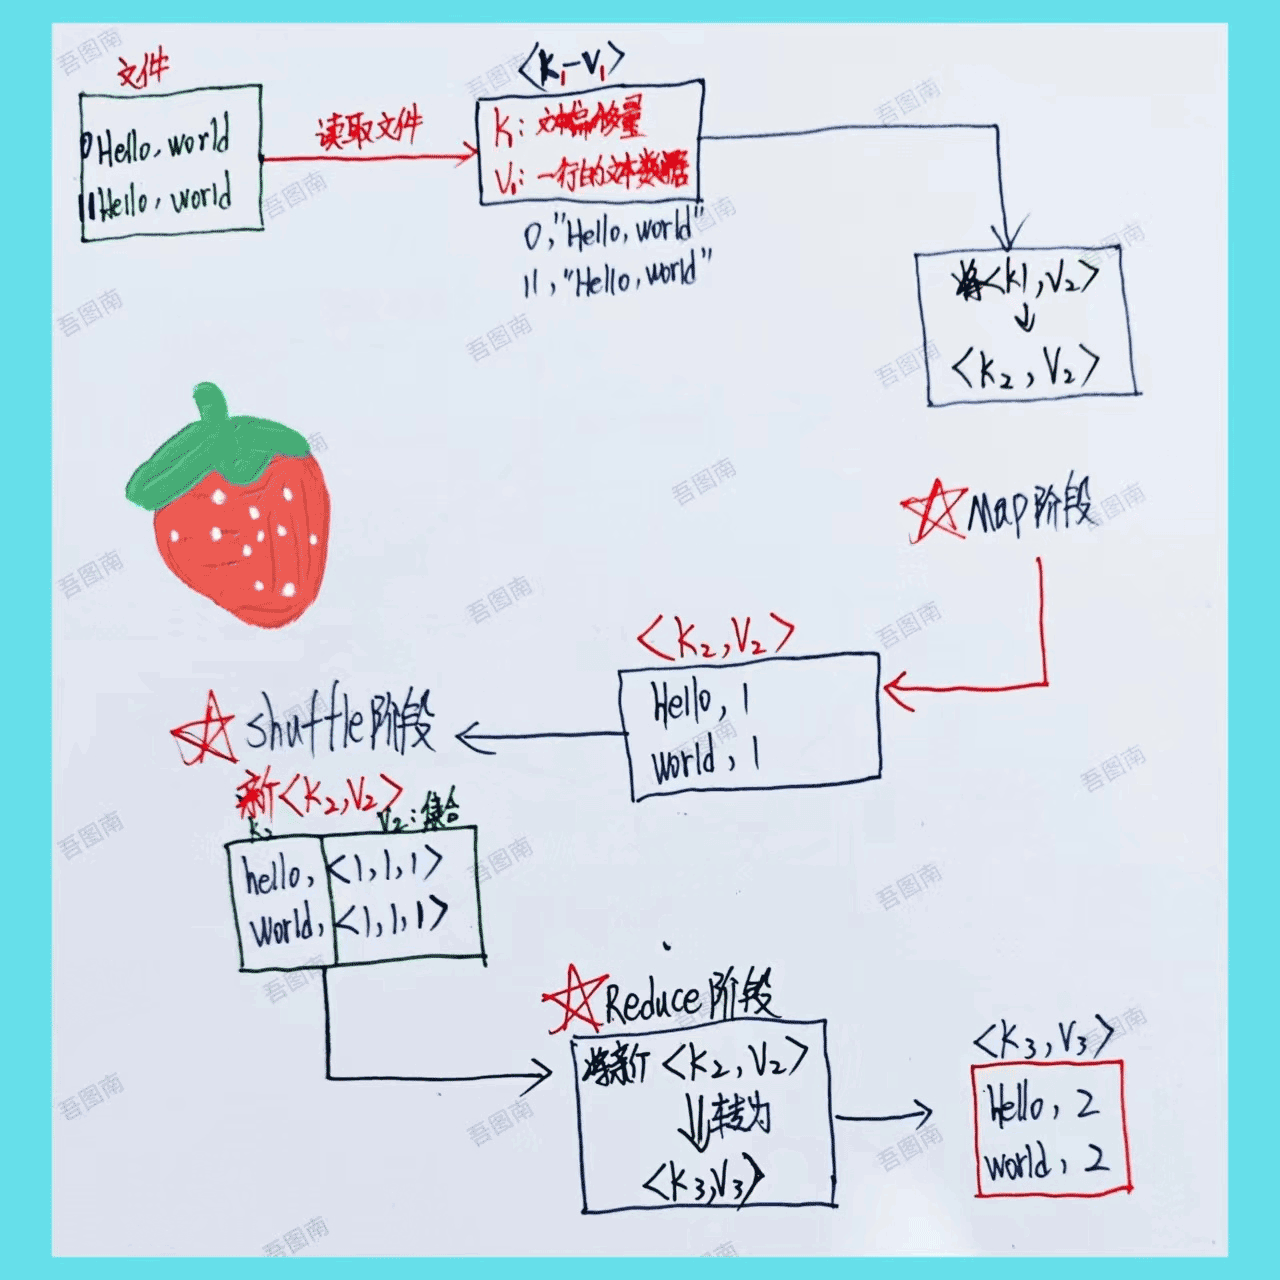 文件
0Hello,world
11Hello,world
读取文件
<K₁-V₁>
K₁:文本偏移量
V₁:一行的文本数据
0,"Hello,world"
11,"Hello,world"
将<k1,V₂>
↓
<K₂,V₂>
☆Map阶段
<K₂,V₂>
Hello,1
world,1
☆shuffle阶段
新<K₂,V₂>
K₂ V₂:集合
hello,<1,1,1>
world,<1,1,1>
☆Reduce阶段
将新<K₂,V₂>
⇓转为
<K₃,V₃>
<K₃,V₃>
Hello,2
world,2
吾图南